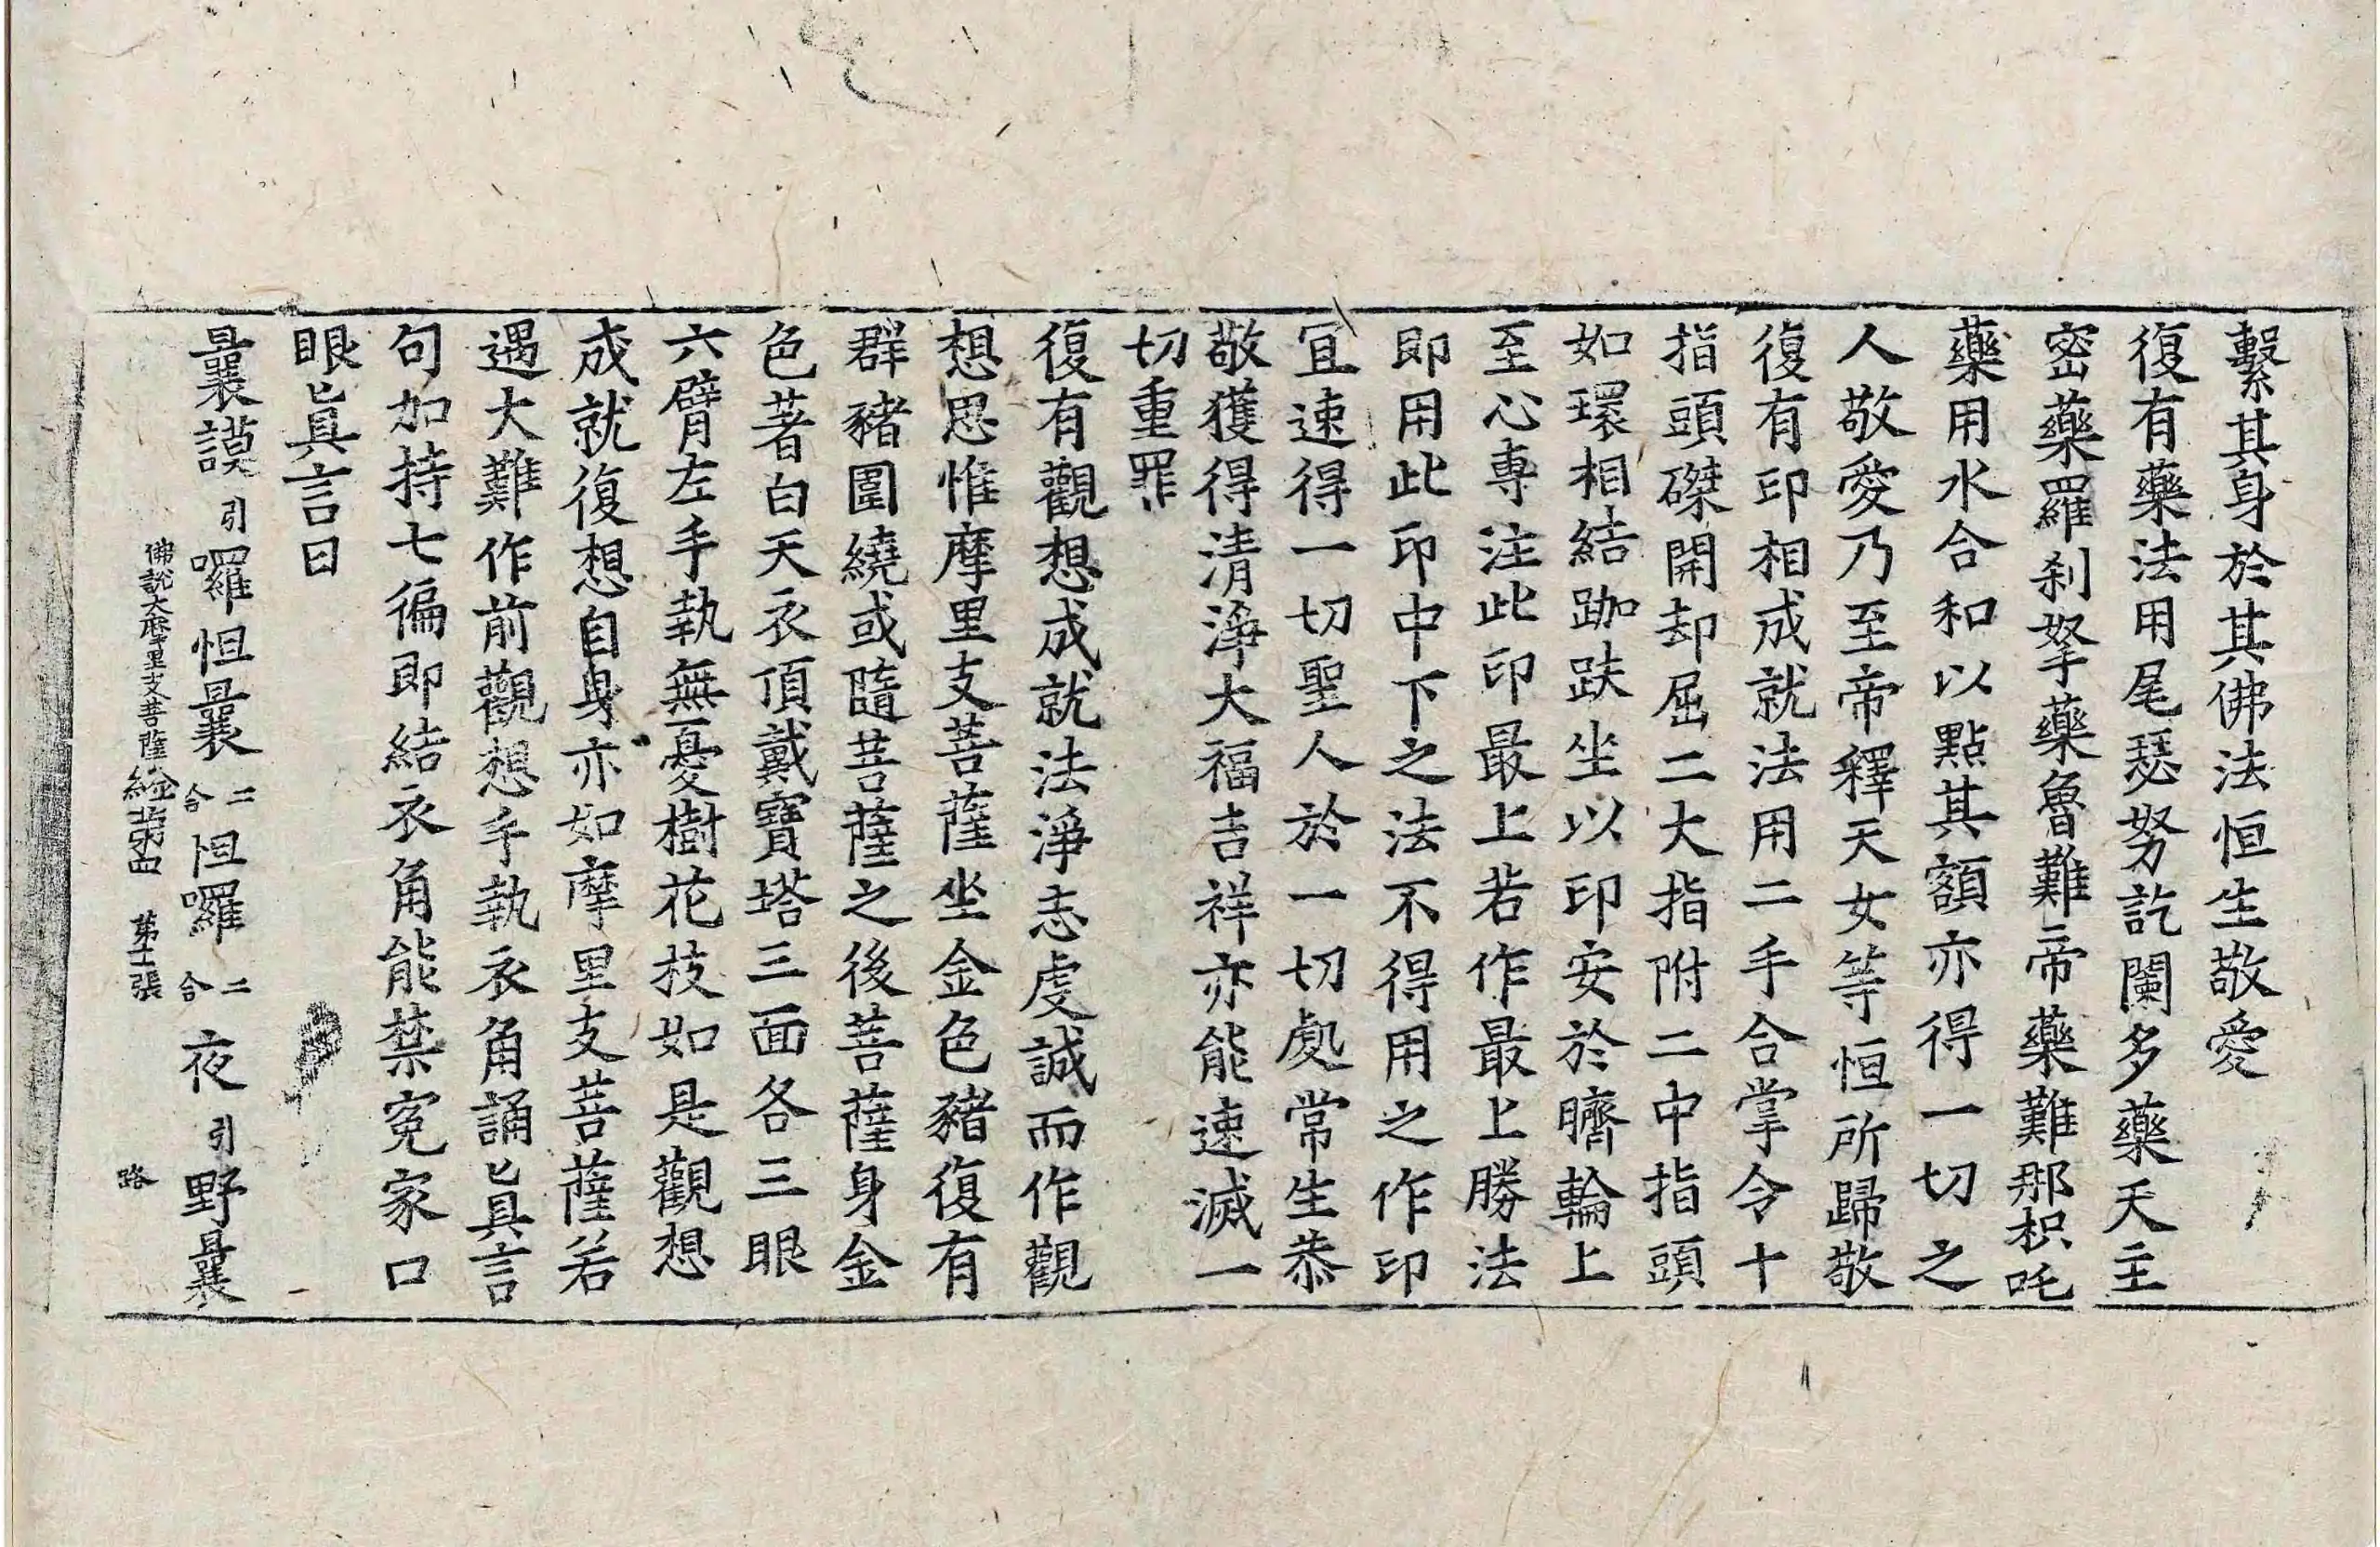 繫其身於其佛法恒生敬愛
復有藥法用尾瑟努訖闌多藥天主
密藥羅刹拏藥魯難帝藥難那枳吒
藥用水合和以點其額亦得一切之
人敬愛乃至帝釋天女等恒所歸敬
復有印相成就法用二手合掌令十
指頭磔開却屈二大指附二中指頭
如環相結跏趺坐以印安於臍輪上
至心專注此印最上若作最上勝法
即用此印中下之法不得用之作印
冝速得一切聖人於一切處常生恭
敬獲得清淨大福吉祥亦能速滅一
切重罪
復有觀想成就法淨志虔誠而作觀
想思惟摩里支菩薩坐金色豬復有
群豬圍繞或隨菩薩之後菩薩身金
色著白天衣頂戴寶塔三面各三眼
六臂左手執無憂樹花枝如是觀想
成就復想自身亦如摩里支菩薩若
遇大難作前觀想手執衣角誦眞言
句加持七徧即結衣角能禁冤家口
眼眞言曰
曩謨引囉怛曩二合怛囉二合夜引野曩
佛說大摩里支菩薩經第四 第十二張 路